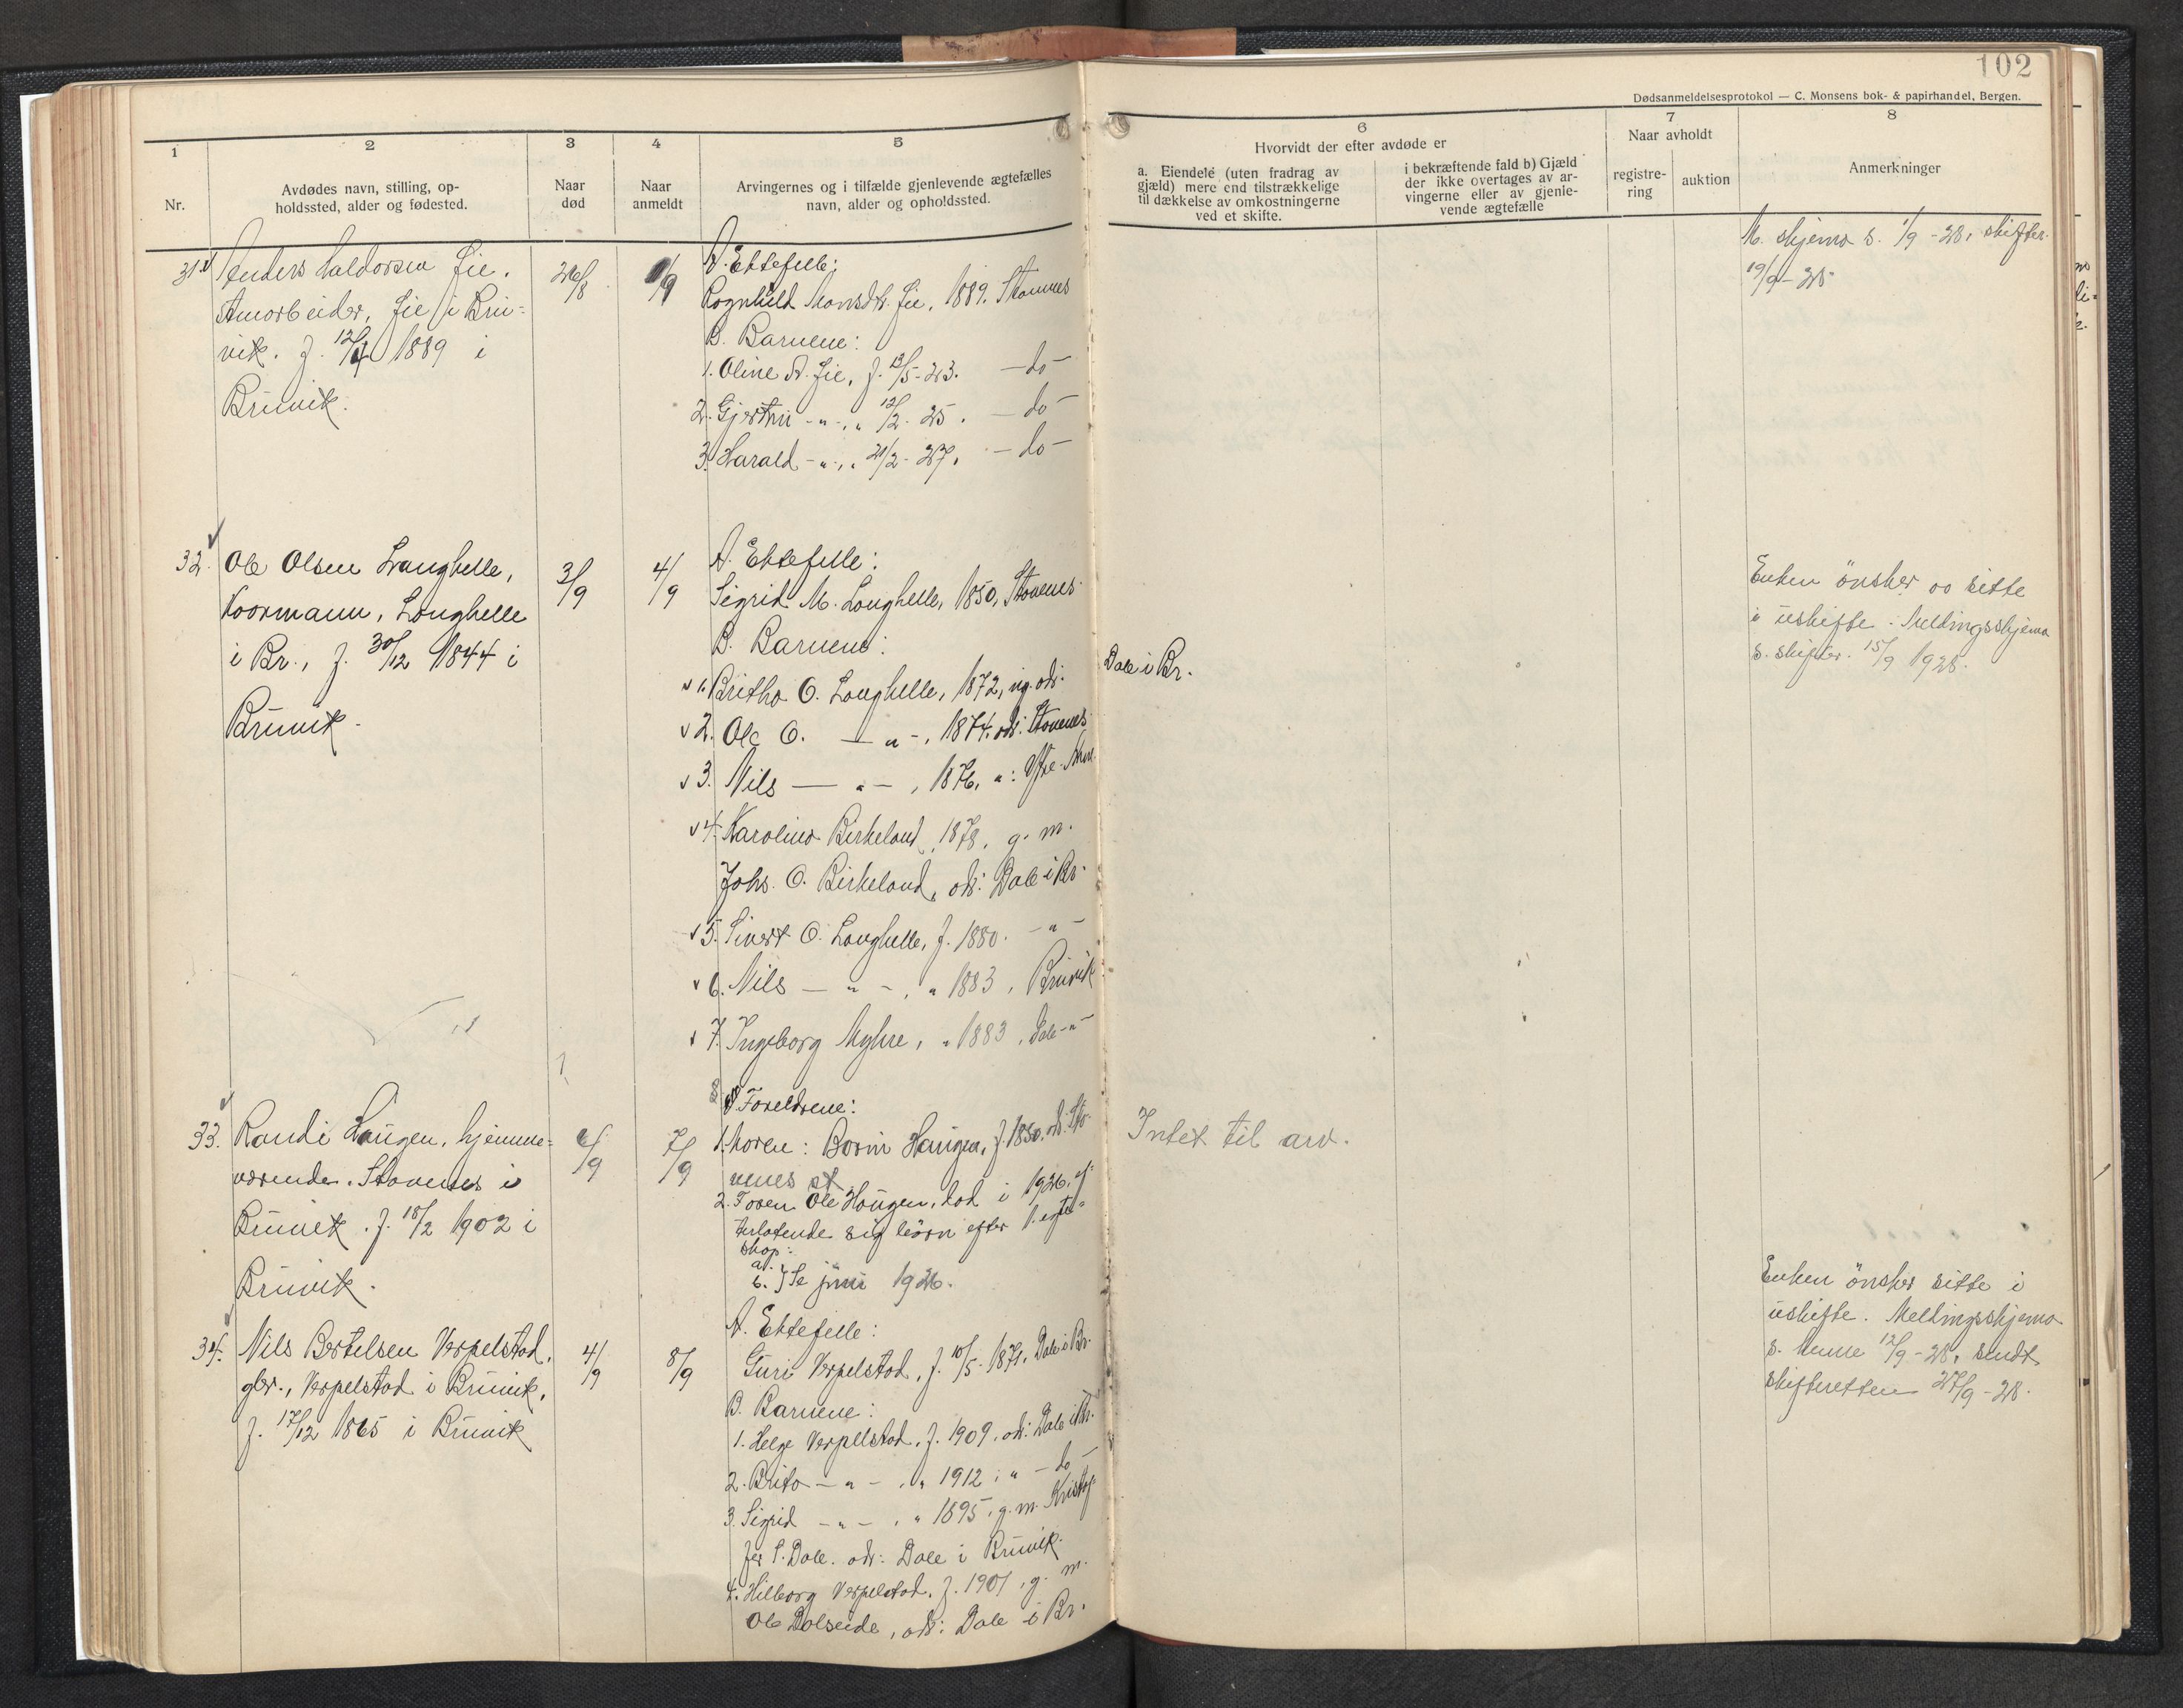 102
Dødsanmeldelsesprotokol — C. Monsens bok- & papirhandel, Bergen.
1
Nr.
2
Avdødes navn, stilling, op-
holdssted, alder og fødested.
3
Naar
død
4
Naar
anmeldt
5
Arvingernes og i tilfælde gjenlevende ægtefælles
navn, alder og opholdssted.
6
Hvorvidt der efter avdøde er
a. Eiendele (uten fradrag av
gjæld) mere end tilstrækkelige
til dækkelse av omkostningerne
ved et skifte.
i bekræftende fald b) Gjæld
der ikke overtages av ar-
vingerne eller av gjenle-
vende ægtefælle
7
Naar avholdt
registre-
ring
auktion
8
Anmerkninger
31. Anders Haldorsen Fie,
Fie i Bru-
vik. f. 1889 i
Bruvik.
26/8
1/9
A. Ektefelle:
Rognhild Monsdtr. Fie, 1889. Stamnes
B. Barnene:
1. Oline A. Fie, f. 12/5-23. — do —
2. Gjertru - " -, " 12/2-25. — do —
3. Harald - " -, " 21/2-27. — do —
M. skjema s. 1/9-28, skifter.
19/9-28
32. Ole Olsen Langhelle,
Koormann, Langhelle
i Br., f. 30/12 1844 i
Bruvik.
3/9
4/9
A. Ektefelle:
Sigrid M. Langhelle, 1850, Stavenes
B. Barnene:
1. Britha O. Langhelle, 1872, ug. adr. Dale i Br.
2. Ole O. — " -, 1874. adr: Stavenes
3. Nils — " —, 1876, ":
4. Karolina Birkeland, 1878, g. m.
Johs. O. Birkeland, adr: Dale i Br.
5. Sivert O. Langhelle, f. 1880. - " -
6. Nils — " -, " 1883, Bruvik
7. Ingeborg Myhre, " 1883, Dale - " -
Enken önsker aa sitte
i uskifte. Meldingsskjema
s. skifter. 15/9 1928.
33. Randi Haugen, hjemme-
værende. Stavenes i
Bruvik. f. 18/2 1902 i
Bruvik.
6/9
7/9
Foreldrene:
1. Moren: Borni Haugen, f. 1850. adr. Sta-
venes
2. Faren Ole Haugen, död i 1926, ef-
terlatende sig börn efter 1. egte-
skap:
a.
b. juni 1926.
Intet til arv.
34. Nils Bertelsen Verpelstad,
gbr., Verpelstad i Bruvik,
f. 17/12 1865 i Bruvik
4/9
8/9
A. Ektefelle:
Guri Verpelstad, f. 10/5-1871, Dale i Br.
B. Barnene:
1. Helge Verpelstad, f. 1909, adr: Dale i Br.
2. Brita - " -, " 1912, " - do -
3. Sigrid - " -, " 1895, g. m. Kristof-
fer S. Dale. adr: Dale i Bruvik.
4. Hilborg Verpelstad, f. 1901, g. m.
Ole Dalseide, adr: Dale i Br.
Enken önsker sitte i
uskifte. Meldingsskjema
s. 12/9-28, sendt
skifteretten 27/9-28.